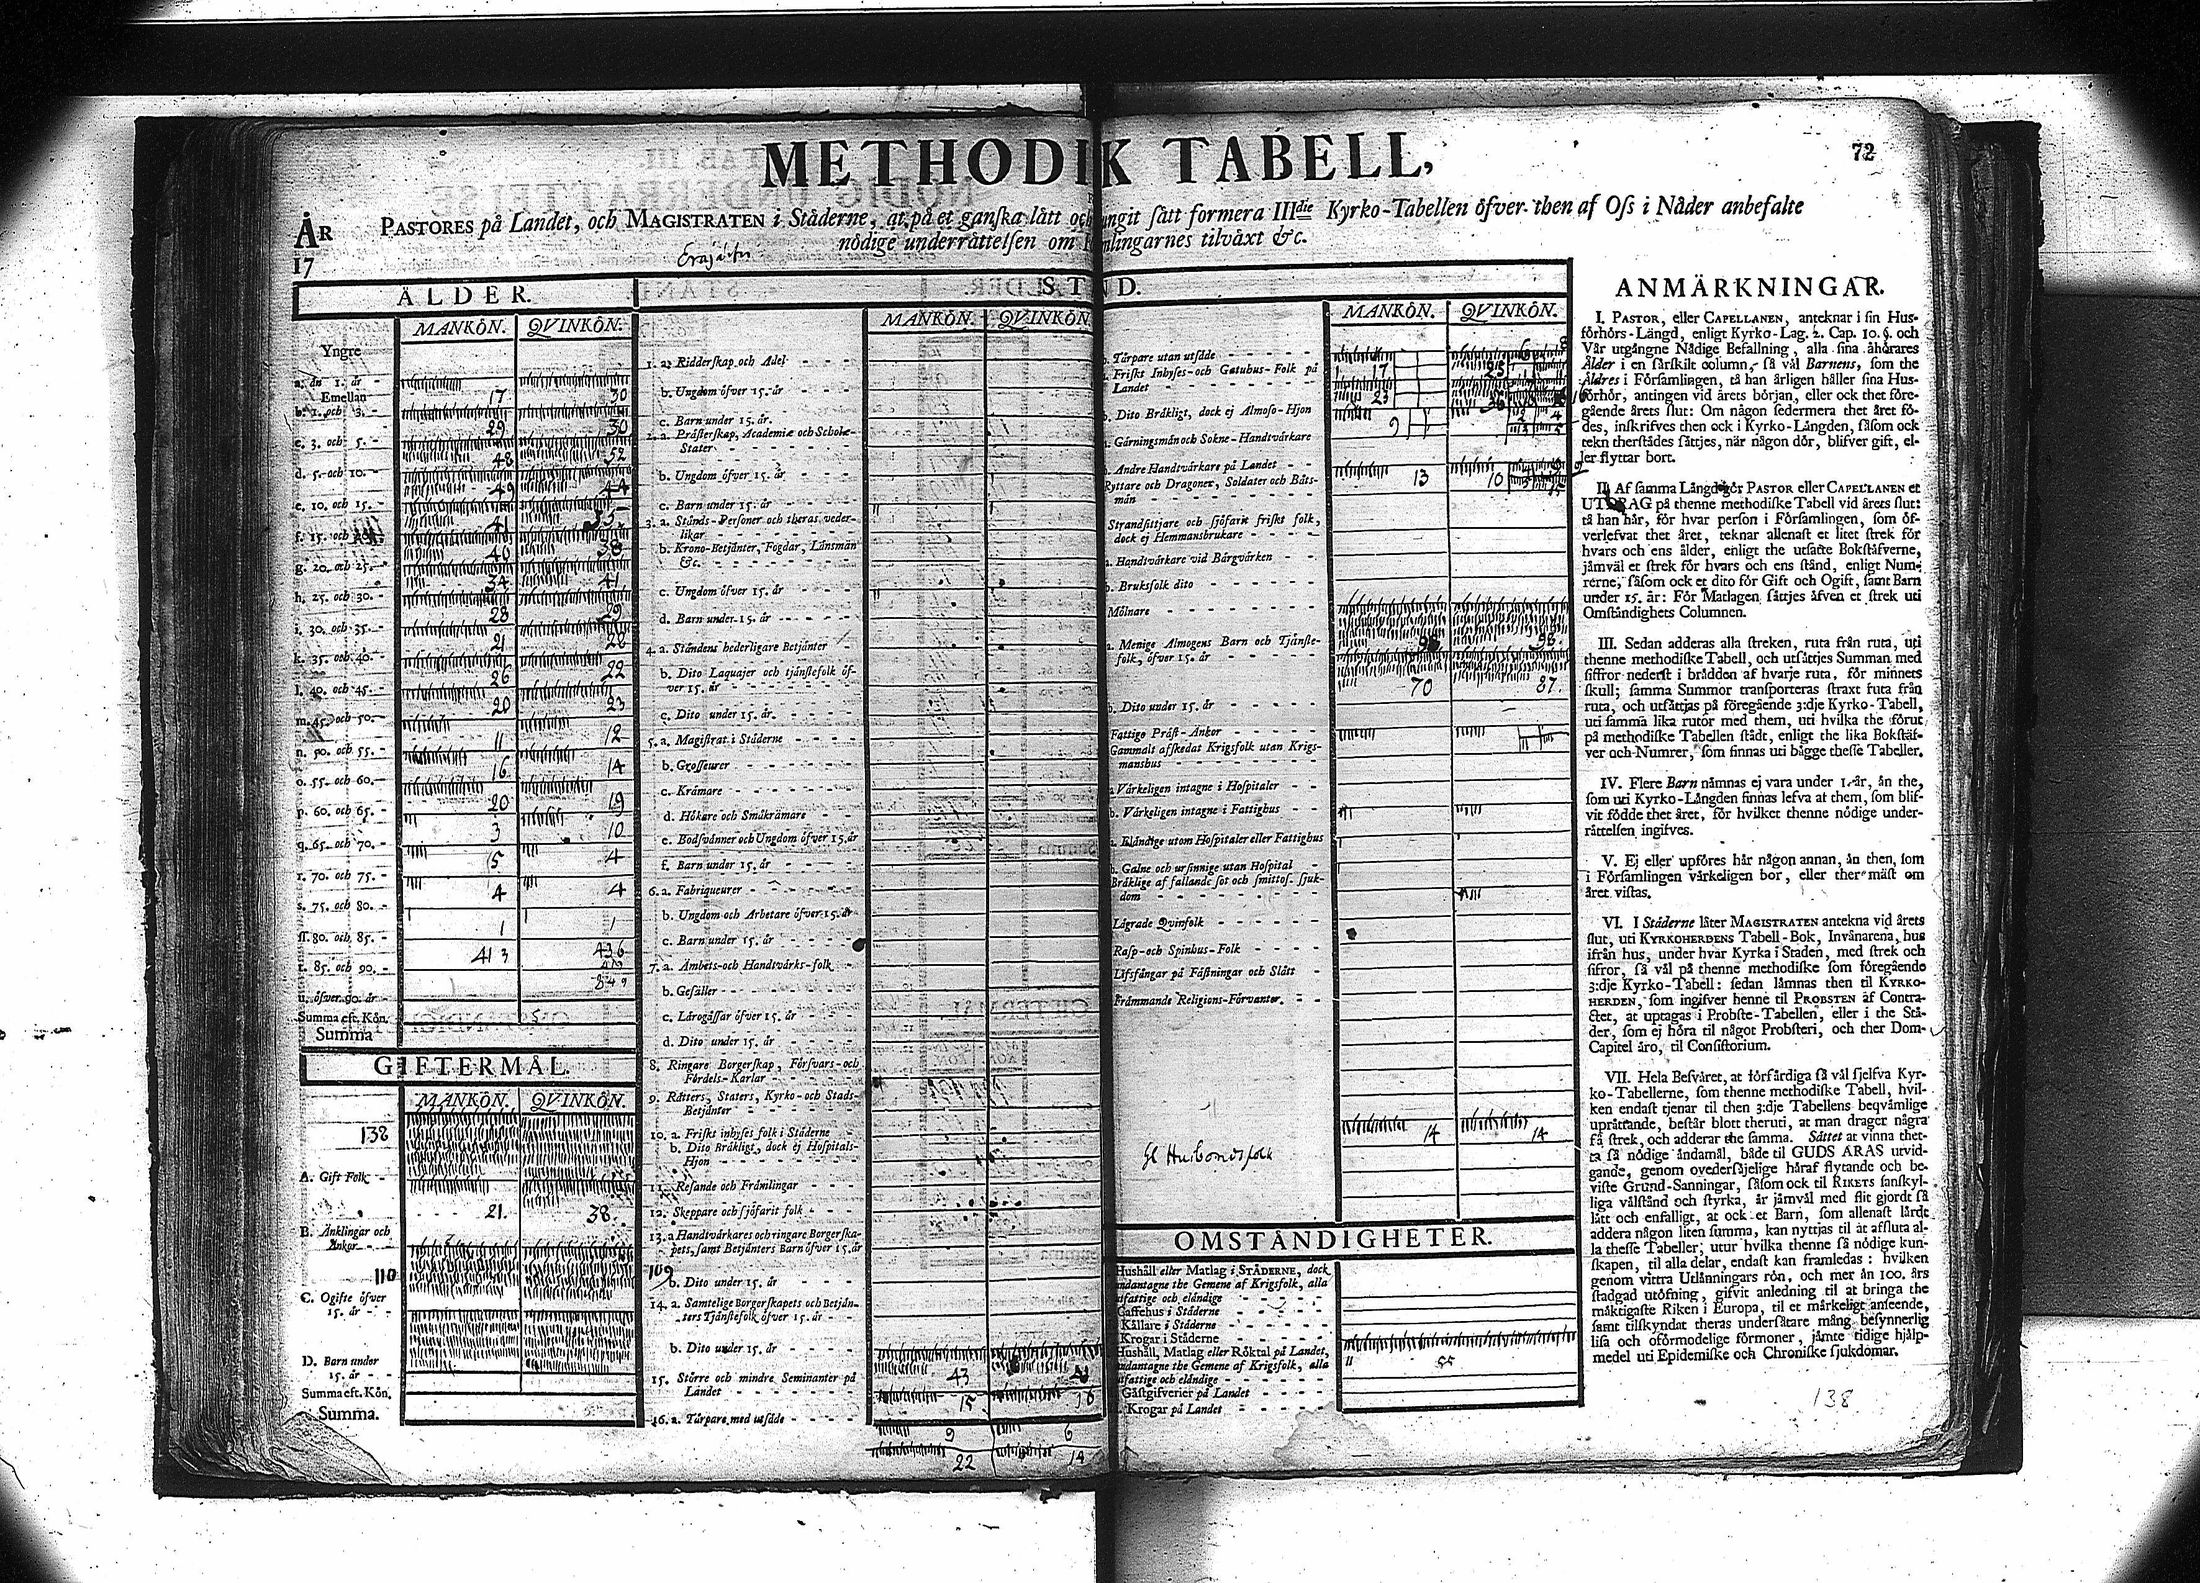 METHODIK TABELL,
72
ÅR
17
PASTORES på Landet, och MAGISTRATEN i Städerne, at på et ganska lätt och ringit sätt formera IIIdie Kyrko-Tabellen öfver then af Oss i Nåder anbefalte
nödige underrättelsen om lingarnes tilväxt &c.
ÅLDER.
MANKÖN. QVINKÖN.
Yngre
a. än 1. år -
17 30
Emellan
b. 1. och 3. -
29 30
c. 3. och 5. -
48 52
d. 5. och 10. -
49 44
e. 10. och 15. -
41 35
f. 15. och
40 38
g. 20. och 25. -
34 41
h. 25. och 30. -
28 29
i. 30. och 35. -
21 28
k. 35. och 40. -
26 22
l. 40. och 45. -
20 23
m. 45. och 50. -
11 12
n. 50. och 55. -
16 14
o. 55. och 60. -
20 19
p. 60. och 65. -
3 10
q. 65. och 70. -
5 4
r. 70. och 75. -
4 4
s. 75. och 80. -
1 1
ſſ. 80. och 85. -
413 436
t. 85. och 90. -
849
u. öfver 90. år -
Summa eft. Kön.
Summa
GIFTERMÅL.
MANKÖN. QVINKÖN.
138
A. Gift Folk -
21. 38.
B. Änklingar och
Änkor - -
110 109
C. Ogifte öfver
15. år - -
D. Barn under
15. år - -
Summa eft. Kön.
Summa.
STND.
MANKÖN. QVINKÖN
1. a. Ridderskap och Adel
b. Ungdom öfver 15. år
c. Barn under 15. år.
2. a. Prästerskap, Academiæ och Scholæ-
Stater
b. Ungdom öfver 15. år
c. Barn under 15. år
3. a. Stånds-Personer och theras veder-
likar
b. Krono-Betjänter, Fogdar, Länsmän
&c.
c. Ungdom öfver 15. år
d. Barn under 15. år
4. a. Ståndens hederligare Betjänter
b. Dito Laquajer och tjänstefolk öf-
ver 15. år
c. Dito under 15. år.
5. a. Magistrat i Städerne
b. Grosseurer
c. Krämare
d. Hökare och Småkrämare
e. Bodsvänner och Ungdom öfver 15. år
f. Barn under 15. år
6. a. Fabriqueurer
b. Ungdom och Arbetare öfver 15. år
c. Barn under 15. år
7. a. Ämbets-och Handtvärks-folk
b. Gesäller
c. Lärogåssar öfver 15. år
d. Dito under 15. år
8. Ringare Borgerskap, Försvars-och
Fördels-Karlar
9. Rätters, Staters, Kyrko-och Stads-
Betjänter
10. a. Friskt inhyses folk i Städerne
b. Dito Bräkligt, dock ej Hospitals-
Hjon
11. Resande och Främlingar
12. Skeppare och sjöfarit folk
13. a Handtvärkares och ringare Borgerska-
pets, samt Betjänters Barn öfver 15. år
b. Dito under 15. år
14. a. Samtelige Borgerskapets och Betjän-
ters Tjänstefolk öfver 15. år
b. Dito under 15. år
43
15. Större och mindre Seminanter på
Landet
15
16. a. Tårpare med utsäde
9 6
22 14
MANKÖN. QVINKÖN.
Tårpare utan utsäde
17 25
Friskt Inhyses-och Gatuhus-Folk på
Landet
23
Dito Bräkligt, dock ej Almoso-Hjon
9
Gärningsmän och Sokne-Handtvärkare
Andre Handtvärkare på Landet
13 10
Ryttare och Dragoner, Soldater och Båts-
män
Strandsittjare och sjöfarit friskt folk,
dock ej Hemmansbrukare
Handtvärkare vid Bärgvärken
b. Bruksfolk dito
Mölnare
98.
Menige Almogens Barn och Tjänste-
folk, öfver 15. år
70 87.
b. Dito under 15. år
Fattige Präst-Änkor
Gammalt afskedat Krigsfolk utan Krigs-
manshus
Värkeligen intagne i Hospitaler
b. Värkeligen intagne i Fattighus
Eländige utom Hospitaler eller Fattighus
b. Galne och ursinnige utan Hospital
Bräklige af fallande sot och smittos. sjuk-
dom
Lägrade Qvinfolk
Rasp-och Spinhus-Folk
Lifsfångar på Fästningar och Slått
Främmande Religions-Förvanter.
Gl Husbondsfolk
14 14
OMSTÄNDIGHETER.
Hushåll eller Matlag i STÄDERNE, dock
undantagne the Gemene af Krigsfolk, alla
utfattige och eländige
Caffehus i Städerne
Källare i Städerne
Krogar i Städerne
Hushåll, Matlag eller Röktal på Landet,
undantagne the Gemene af Krigsfolk, alla
utfattige och eländige
55
Gästgifverier på Landet
Krogar på Landet
ANMÄRKNINGAR.
I. PASTOR, eller CAPELLANEN, anteknar i sin Hus-
förhörs-Längd, enligt Kyrko-Lag. 2. Cap. 10. §. och
Vår utgångne Nådige Befallning, alla sina åhörares
Ålder i en särskilt column, så väl Barnens, som the
Äldres i Församlingen, tå han årligen håller sina Hus-
förhör, antingen vid årets början, eller ock thet före-
gående årets slut: Om någon sedermera thet året fö-
des, inskrifves then ock i Kyrko-Längden, såsom ock
tekn therstädes sättjes, när någon dör, blifver gift, el-
ler flyttar bort.
II. Af samma Längd gör PASTOR eller CAPELLANEN et
UTDRAG på thenne methodiske Tabell vid årets slut:
tå han här, för hvar person i Församlingen, som öf-
verlefvat thet året, teknar allenast et litet strek för
hvars och ens ålder, enligt the utsatte Bokstäfverne,
jämväl et strek för hvars och ens stånd, enligt Num-
rerne, såsom ock et dito för Gift och Ogift, samt Barn
under 15. år: För Matlagen sättjes äfven et strek uti
Omständighets Columnen.
III. Sedan adderas alla streken, ruta från ruta, uti
thenne methodiske Tabell, och utsättjes Summan med
siffror nederst i brädden af hvarje ruta, för minnets
skull; samma Summor transporteras straxt ruta från
ruta, och utsättjas på föregående 3:dje Kyrko-Tabell,
uti samma lika rutor med them, uti hvilka the förut
på methodiske Tabellen stådt, enligt the lika Bokstäf-
ver och Numrer, som finnas uti bägge thesse Tabeller.
IV. Flere Barn nämnas ej vara under 1. år, än the,
som uti Kyrko-Längden finnas lefva at them, som blif-
vit födde thet året, för hvilket thenne nödige under-
rättelsen ingifves.
V. Ej eller upföres här någon annan, än then, som
i Församlingen värkeligen bor, eller ther mäst om
året vistas.
VI. I Städerne låter MAGISTRATEN antekna vid årets
slut, uti KYRKOHERDENS Tabell-Bok, Invånarena, hus
ifrån hus, under hvar Kyrka i Staden, med strek och
sifror, så väl på thenne methodiske som föregående
3:dje Kyrko-Tabell: sedan lämnas then til KYRKO-
HERDEN, som ingifver henne til PROBSTEN af Contra-
ctet, at uptagas i Probste-Tabellen, eller i the Stä-
der, som ej höra til något Probsteri, och ther Dom-
Capitel äro, til Consistorium.
VII. Hela Besväret, at förfärdiga så väl sjelfva Kyr-
ko-Tabellerne, som thenne methodiske Tabell, hvil-
ken endast tjenar til then 3:dje Tabellens beqvämlige
uprättande, består blott theruti, at man drager några
få strek, och adderar the samma. Sättet at vinna thet-
ta så nödige ändamål, både til GUDS ÄRAS utvid-
gande, genom ovedersäjelige häraf flytande och be-
viste Grund-Sanningar, såsom ock til RIKETS sanskyl-
liga välstånd och styrka, är jämväl med flit gjordt så
lätt och enfalligt, at ock et Barn, som allenast lärdt
addera någon liten summa, kan nyttjas til at afsluta al-
la thesse Tabeller; utur hvilka thenne så nödige kun-
skapen, til alla delar, endast kan framledas: hvilken
genom vittra Utlänningars rön, och mer än 100. års
stadgad utöfning, gifvit anledning til at bringa the
mäktigaste Riken i Europa, til et märkeligt anseende,
samt tilskyndat theras undersåtare mång besynnerlig
lisa och oförmodelige förmoner, jämte tidige hjälp-
medel uti Epidemiske och Chroniske sjukdomar.
138